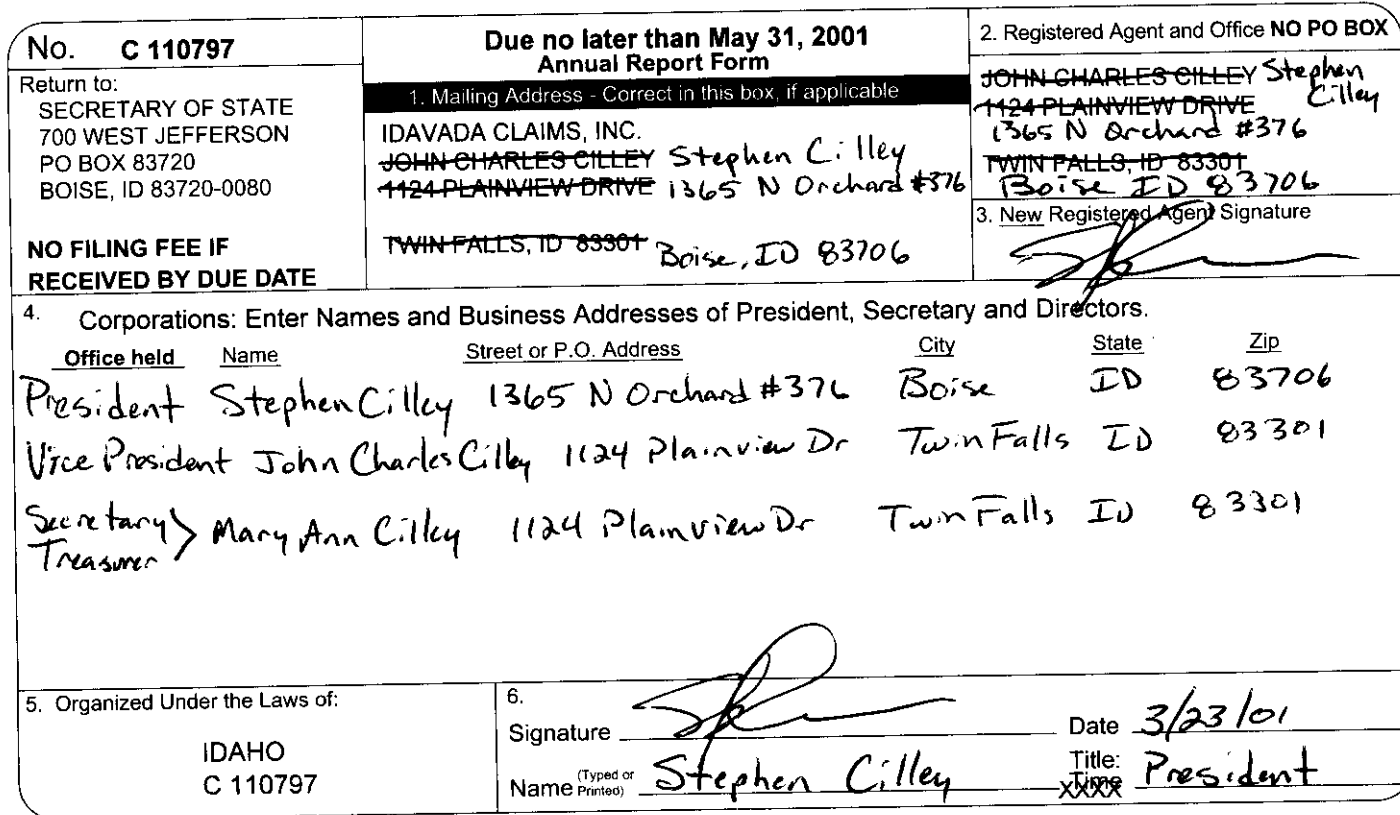 No. C 110797
Return to:
SECRETARY OF STATE
700 WEST JEFFERSON
PO BOX 83720
BOISE, ID 83720-0080
NO FILING FEE IF
RECEIVED BY DUE DATE
Due no later than May 31, 2001
Annual Report Form
1. Mailing Address - Correct in this box, if applicable
IDAVADA CLAIMS, INC.
JOHN CHARLES CILLEY Stephen Cilley
1124 PLAINVIEW DRIVE 1365 N Orchard #376
TWIN FALLS, ID 83301 Boise, ID 83706
2. Registered Agent and Office NO PO BOX
JOHN CHARLES CILLEY Stephen
Cilley
1124 PLAINVIEW DRIVE
1365 N Orchard #376
TWIN FALLS, ID 83301
Boise ID 83706
3. New Registered Agent Signature
4. Corporations: Enter Names and Business Addresses of President, Secretary and Directors.
Office held Name Street or P.O. Address City State Zip
President Stephen Cilley 1365 N Orchard #376 Boise ID 83706
Vice President John Charles Cilley 1124 Plainview Dr Twin Falls ID 83301
Secretary Mary Ann Cilley 1124 Plainview Dr Twin Falls ID 83301
Treasurer
5. Organized Under the Laws of:
IDAHO
C 110797
6.
Signature Date 3/23/01
Name (Typed or Printed) Stephen Cilley Title: President